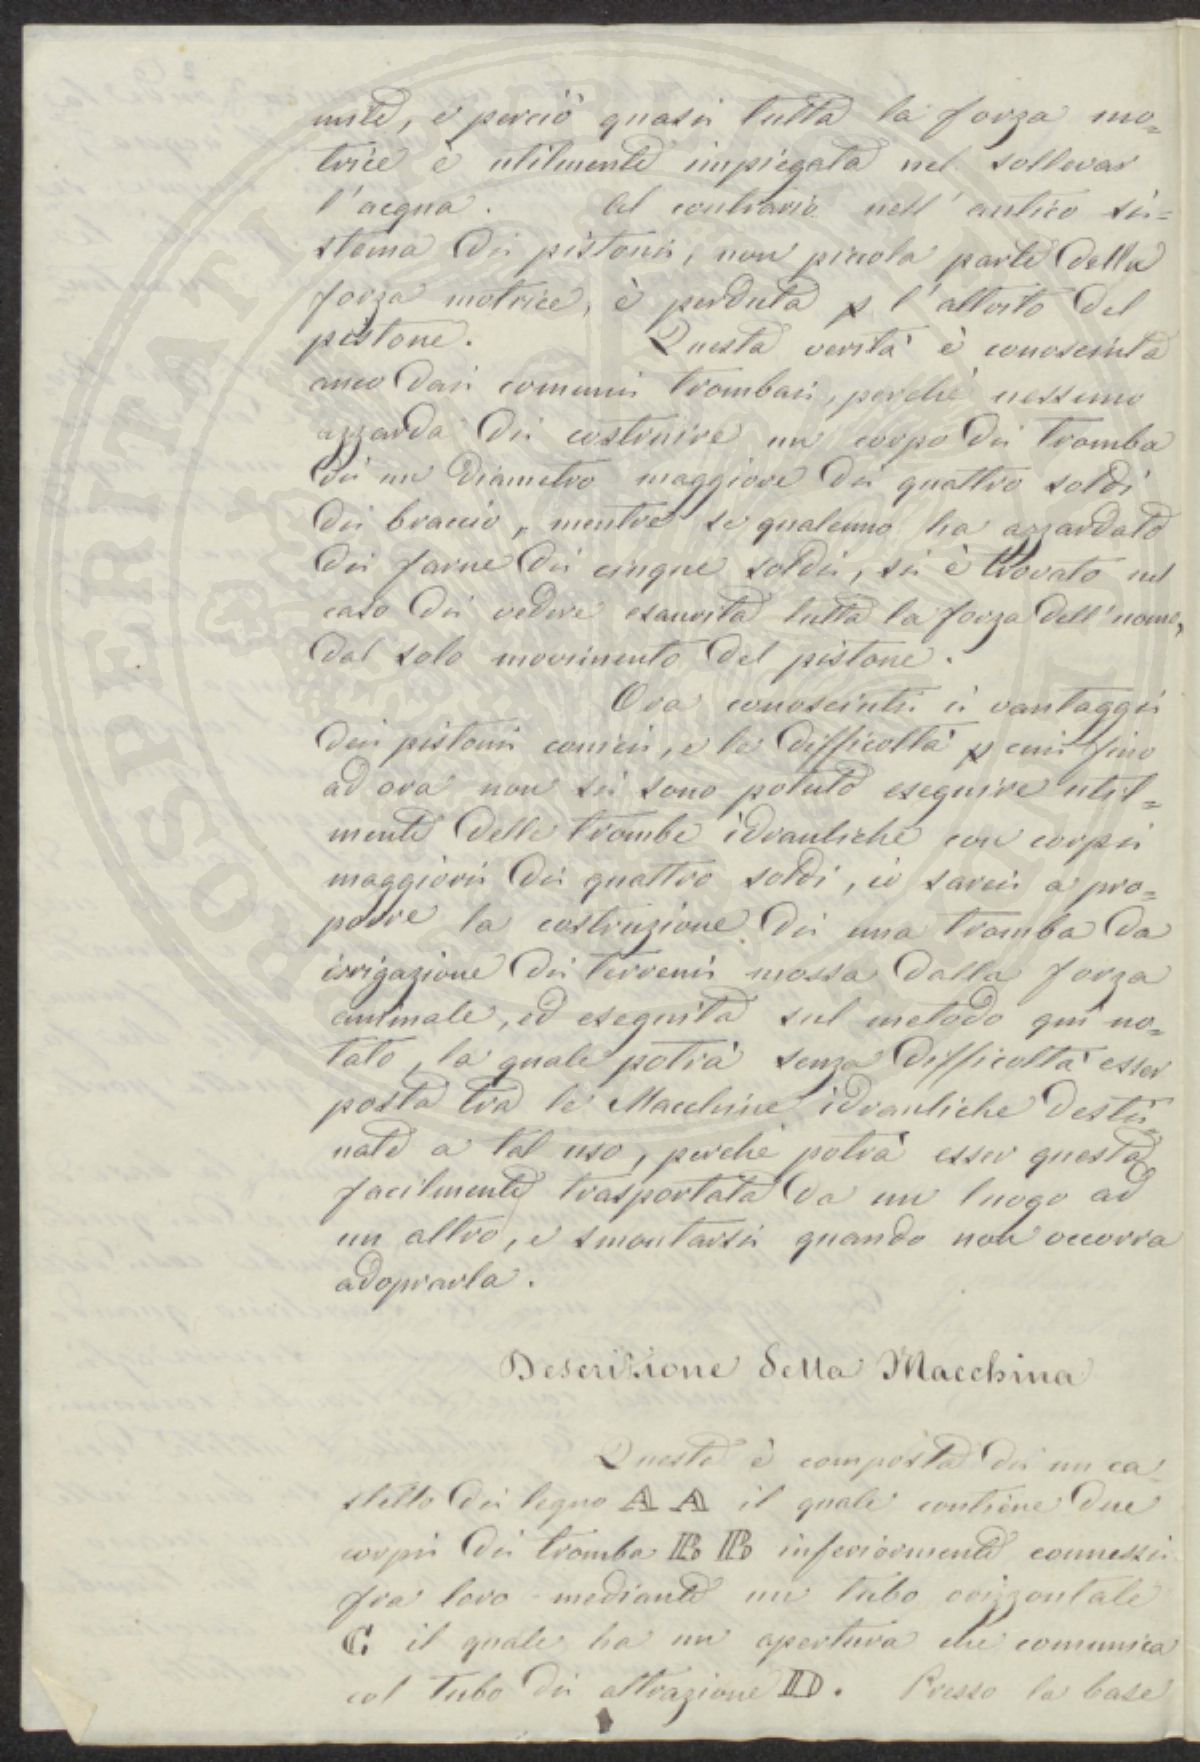 mità, e perciò quasi tutta la forza mo=
trice è utilmente impiegata nel sollevar
l'acqua. Al contrario nell'antico si=
stema di pistoni, non piccola parte della
forza motrice, è perduta p l'attrito del
pistone. Questa verità è conosciuta
anco dai comuni trombai, perchè nessuno
azzarda di costruire un corpo di tromba
di un diametro maggiore di quattro soldi
di braccio, mentre se qualcuno ha azzardato
di farne di cinque soldi, si è trovato nel
caso di vedere esaurita tutta la forza dell'uomo,
dal solo movimento del pistone.
Ora conosciuti i vantaggi
dei pistoni conici, e le difficoltà p cui fino
ad ora non si sono potute eseguire util=
mente delle trombe idrauliche con corpi
maggiori di quattro soldi, io sarei a pro=
porre la costruzione di una tromba da
irrigazione di terreni mossa dalla forza
animale, ed eseguita sul metodo qui no=
tato, la quale potrà senza difficoltà esser
posta tra le Macchine idrauliche desti=
nate a tal uso, perchè potrà esser questa
facilmente trasportata da un luogo ad
un altro, e smontarsi quando non occorra
adoprarla.
Descrizione della Macchina
Questa è composta di un ca
stello di legno A A il quale contiene due
corpi di tromba B B inferiormente connessi
fra loro mediante un tubo orizzontale
C il quale ha un apertura che comunica
col tubo di attrazione D. Presso la base
PROSPERITATI PUBLICAE